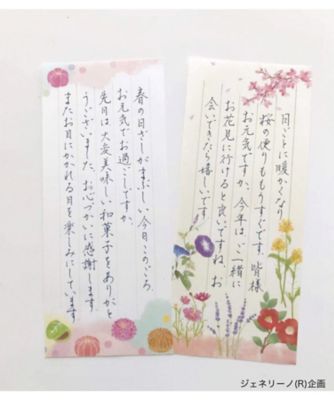 日ごとに暖かくなり
桜の便りももうすぐです。皆様
お元気ですか。今年は、ご一緒に
お花見に行けると良いですね。お
会いできたら嬉しいです。
春の日ざしがまぶしい、今日このごろ、
お元気でお過ごしですか。
先月は大変美味しい和菓子をありがと
うございました。お心づかいに感謝します。
またお目にかかれる日を楽しみにしています。
ジェネリーノ(R)企画